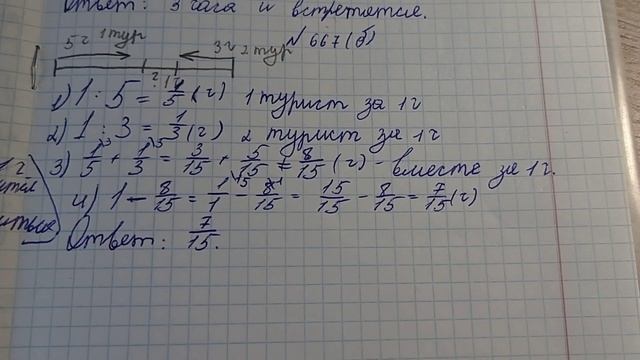 Ответ: 3 часа и встретятся.
№ 667(б)
5ч 1 тур 3ч 2 тур
? 1ч
1) 1 : 5 = 1/5 (ч) 1 турист за 1 ч
2) 1 : 3 = 1/3 (ч) 2 турист за 1 ч
3) 1/5 + 1/3 = 3/15 + 5/15 = 8/15 (ч) - вместе за 1 ч.
4) 1 - 8/15 = 1/1 - 8/15 = 15/15 - 8/15 = 7/15 (ч)
Ответ: 7/15.